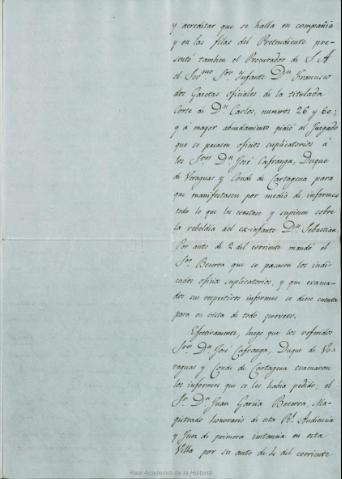 y acreditar que se halla en compañia
y en las filas del Pretendiente pre-
sentó tambien el Procurador de S. A
el Ser.mo Sor Infante Dn Francisco
dos Gacetas oficiales de la titulada
Corte de Dn Carlos, numeros 26 y 60;
y á mayor abundamiento pidió al Juzgado
que se pasasen oficios suplicatorios á
los Sres Dn José Cafranga, Duque
de Veraguas y Conde de Cartagena para
que manifestasen por medio de informes
todo lo que les constase y supiesen sobre
la rebeldia del ex-infante Dn Sebastian.
Por auto de 2 del corriente mandó el
Sr. Becerra que se pasasen los indi-
cados oficios suplicatorios, y que evacua-
dos sus respectivos informes se diese cuenta
para en vista de todo proveer.
Efectivamente, luego que los referidos
Sres Dn José Cafranga, Duque de Ve-
raguas y Conde de Cartagena evacuaron
los informes que se les habia pedido; el
Sr. Dn Juan Garcia Becerra, Ma-
gistrado honorario de esta Rl Audiencia
y Juez de primera instancia en esta
Villa por su auto de 4 del corriente
Real Academia de la Historia